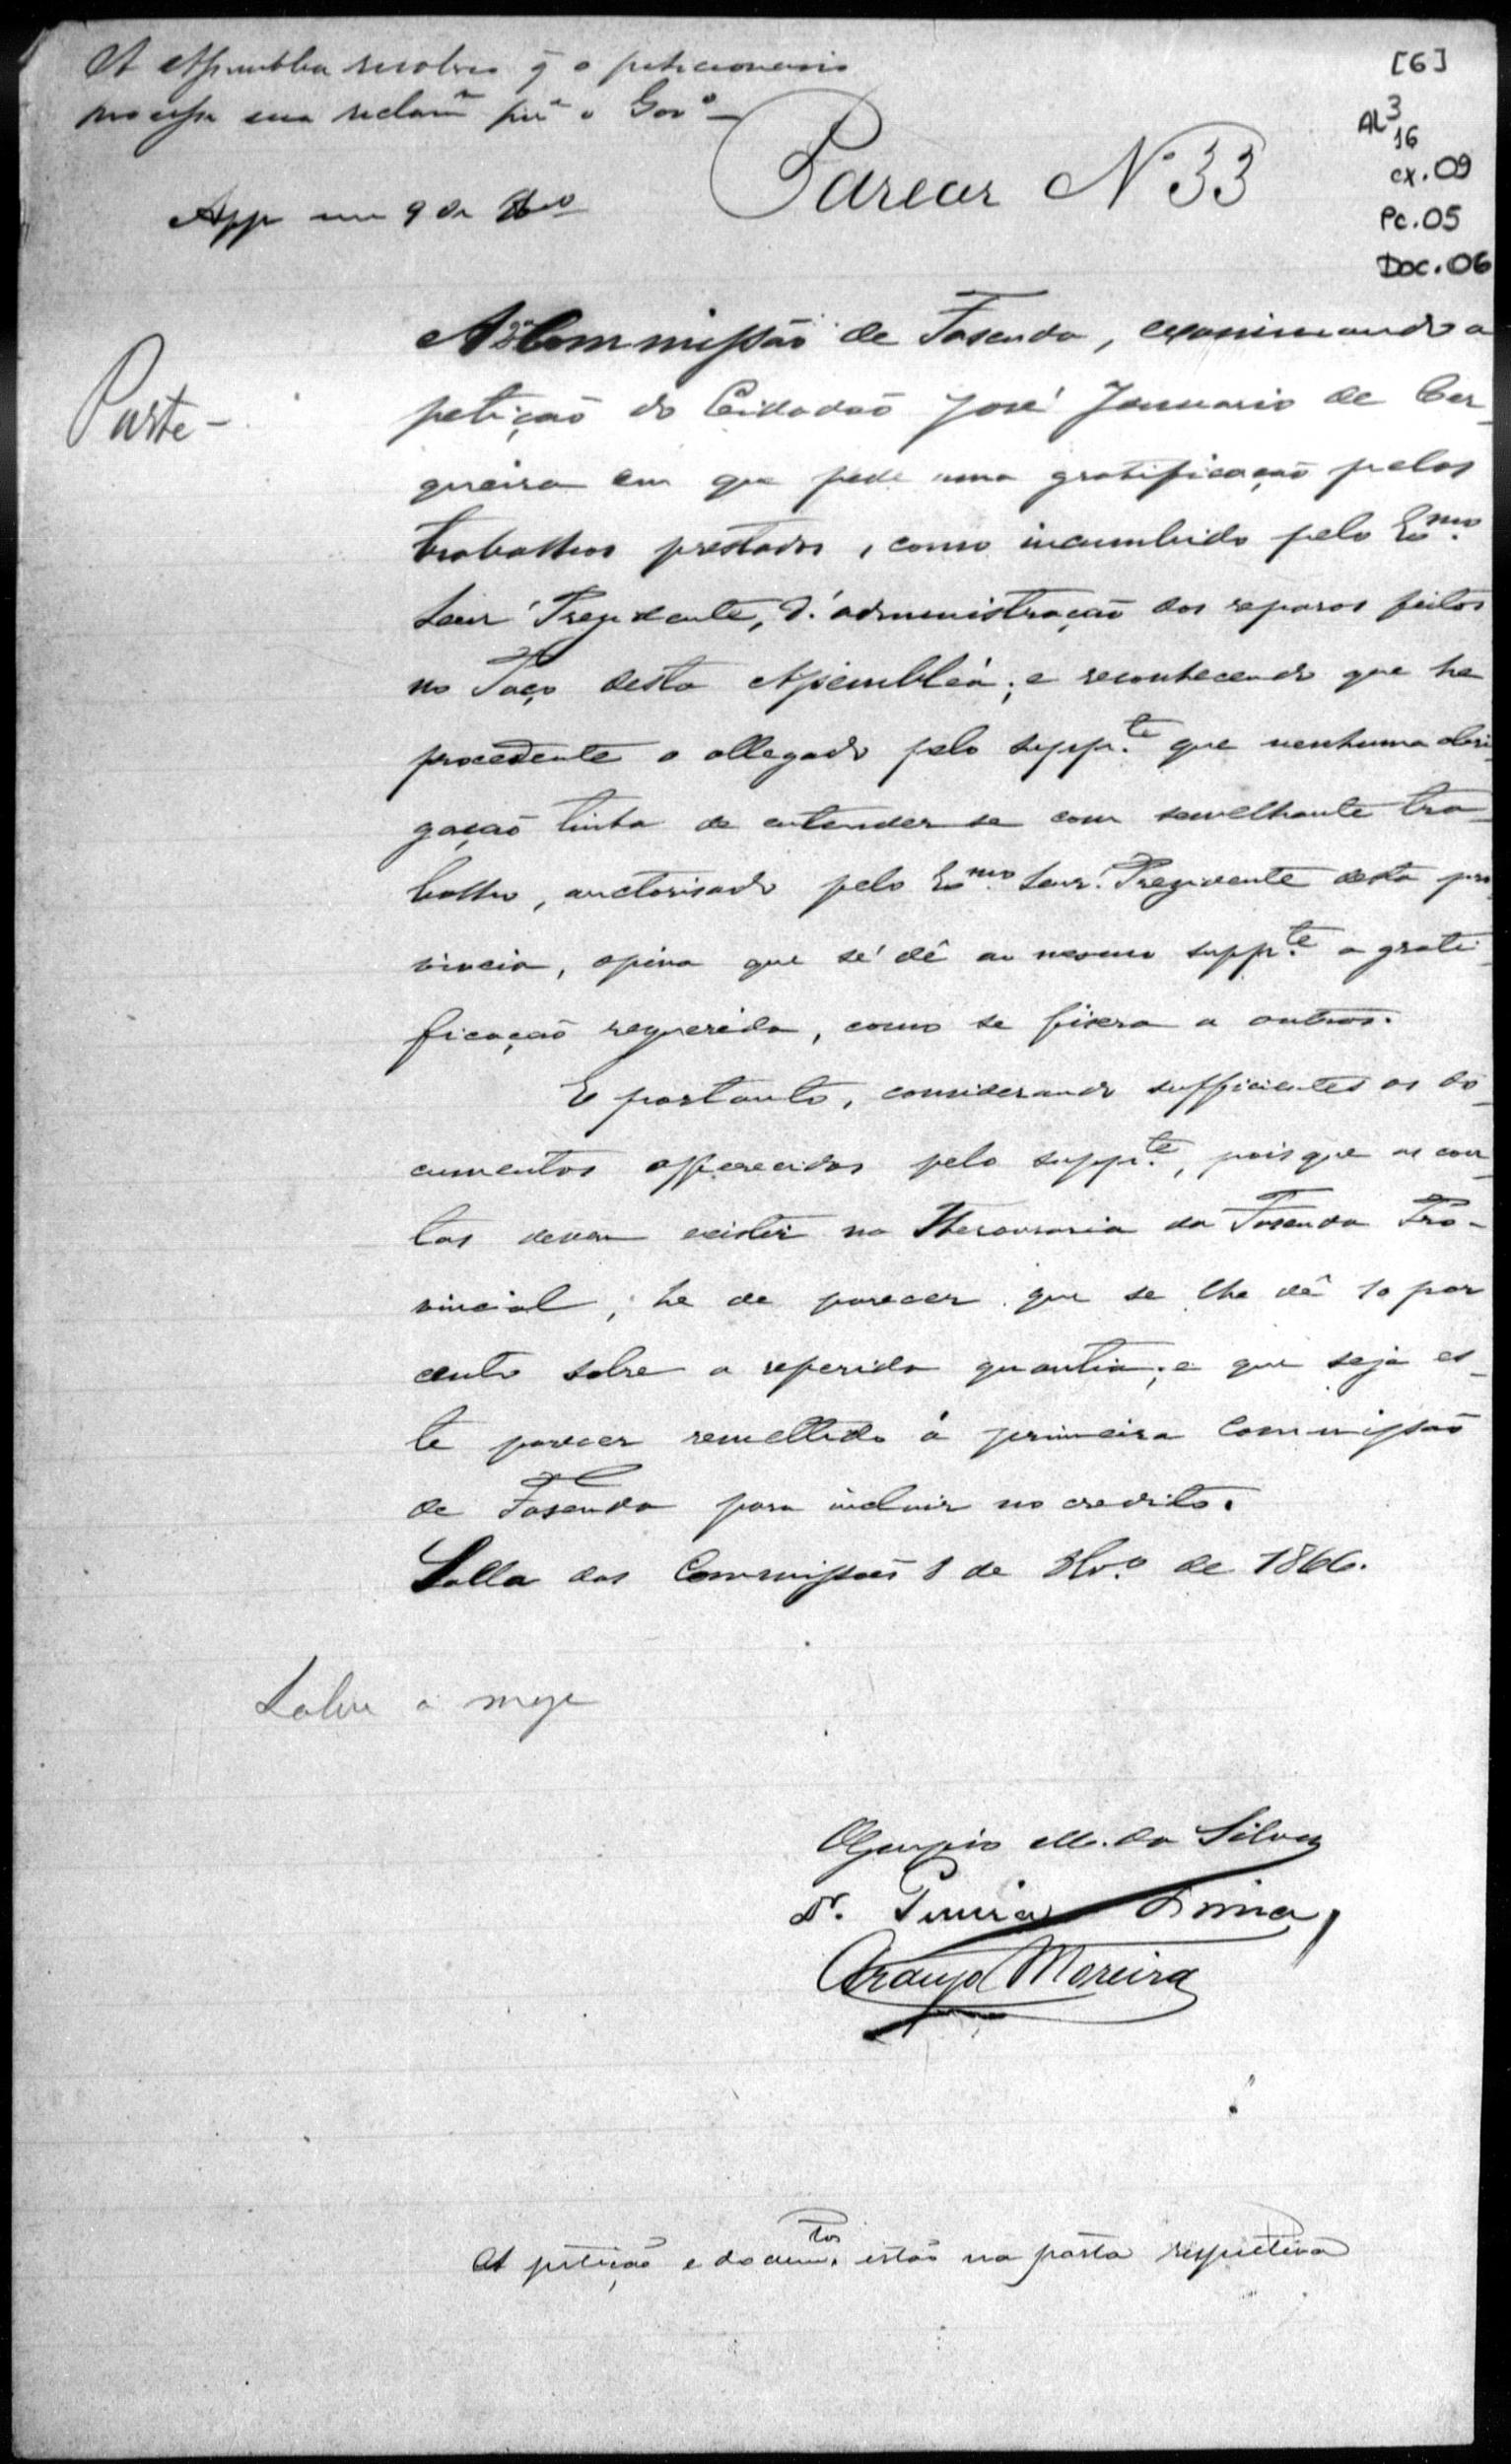 A Assemblea resolveo q̃ o peticionario
sua reclamm pa o Govo
[6]
AL3
16
cx.09
Pc.05
Doc.06
Parecer No 33
App em 9 de
Parte-
A 2a Commissão de Fasenda, examinando a
petição do Cidadão José Januario de Cer-
queira em que pede uma gratificação pelos
trabalhos prestados, como incumbido pelo Exmo.
Senr Presidente, d'administração dos reparos feitos
no Paço desta Assembléa; e reconhecendo que he
procedente o allegado pelo suppte. que nenhuma obri
gação tinha de entender se com semelhante tra-
balho, auctorisado pelo Exmo. Senr. Presidente desta pro
vincia, opina que se dê ao mesmo suppte. a grati-
ficação requerida, como se fisera a outros.
E portanto, considerando sufficientes os do-
cumentos offerecidos pelo suppte., pois que as con-
tas devem existir na Thesouraria da Fasenda Pro-
vincial, he de parecer que se lhe dê 10 por
cento sobre a referida quantia; e que seja es-
te parecer remettido á primeira Commissão
de Fasenda para incluir no credito.
Salla das Commissões 8 de de 1866.
Sobre a mesa
Olympio M. da Silva
Dr. Pereira Lima
Araujo Moreira
A petição e documtos. estão na pasta respectiva